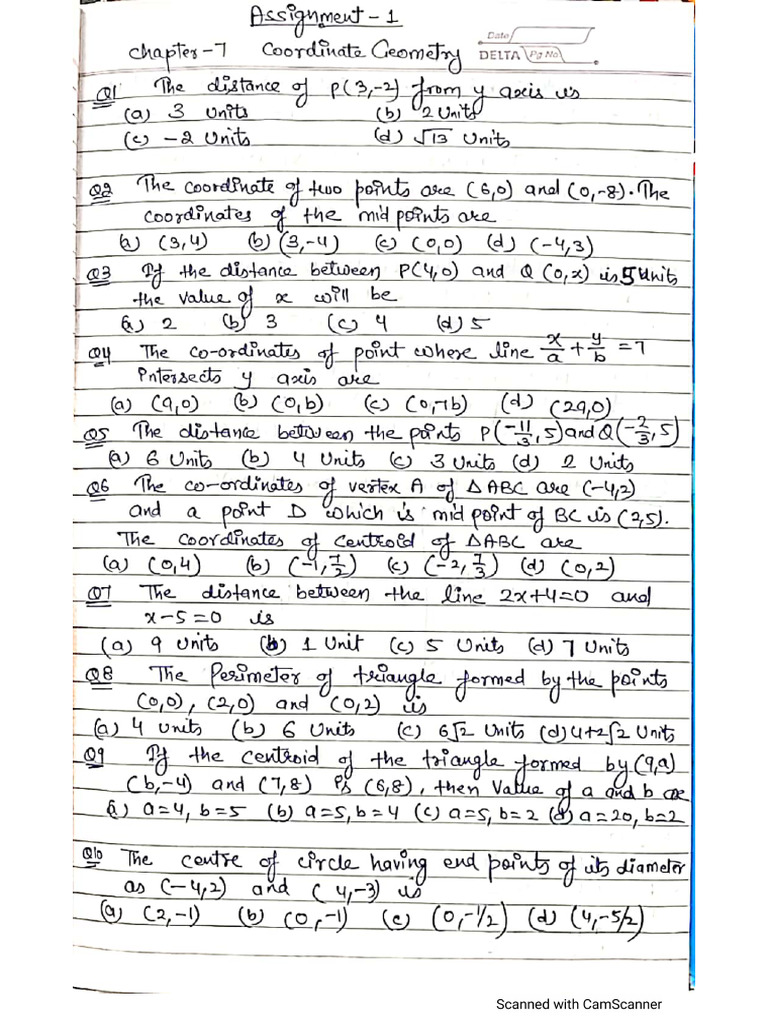 Assignment - 1
Chapter-7 Coordinate Geometry
Date
DELTA Pg No
Q1 The distance of P(3,-2) from y axis is
(a) 3 units (b) 2 units
(c) -2 units (d) √13 units
Q2 The coordinate of two points are (6,0) and (0,-8). The
coordinates of the mid points are
(a) (3,4) (b) (3,-4) (c) (0,0) (d) (-4,3)
Q3 If the distance between P(4,0) and Q (0,x) is 5 units
the value of x will be
(a) 2 (b) 3 (c) 4 (d) 5
Q4 The co-ordinates of point where line x/a + y/b = 7
intersects y axis are
(a) (a,0) (b) (0,b) (c) (0,7b) (d) (2a,0)
Q5 The distance between the points P(-11/3, 5) and Q(-2/3, 5)
(a) 6 units (b) 4 units (c) 3 units (d) 2 units
Q6 The co-ordinates of vertex A of △ABC are (-4,2)
and a point D which is mid point of BC is (2,5).
The coordinates of centroid of △ABC are
(a) (0,4) (b) (-1, 7/2) (c) (-2, 7/3) (d) (0,2)
Q7 The distance between the line 2x+4=0 and
x-5=0 is
(a) 9 units (b) 1 unit (c) 5 units (d) 7 units
Q8 The Perimeter of triangle formed by the points
(0,0), (2,0) and (0,2) is
(a) 4 units (b) 6 units (c) 6√2 units (d) 4+2√2 units
Q9 If the centroid of the triangle formed by (9,a)
(b,-4) and (7,8) is (6,8), then value of a and b are
(a) a=4, b=5 (b) a=5, b=4 (c) a=5, b=2 (d) a=20, b=2
Q10 The centre of circle having end points of its diameter
as (-4,2) and (4,-3) is
(a) (2,-1) (b) (0,-1) (c) (0,-1/2) (d) (4,-5/2)
Scanned with CamScanner